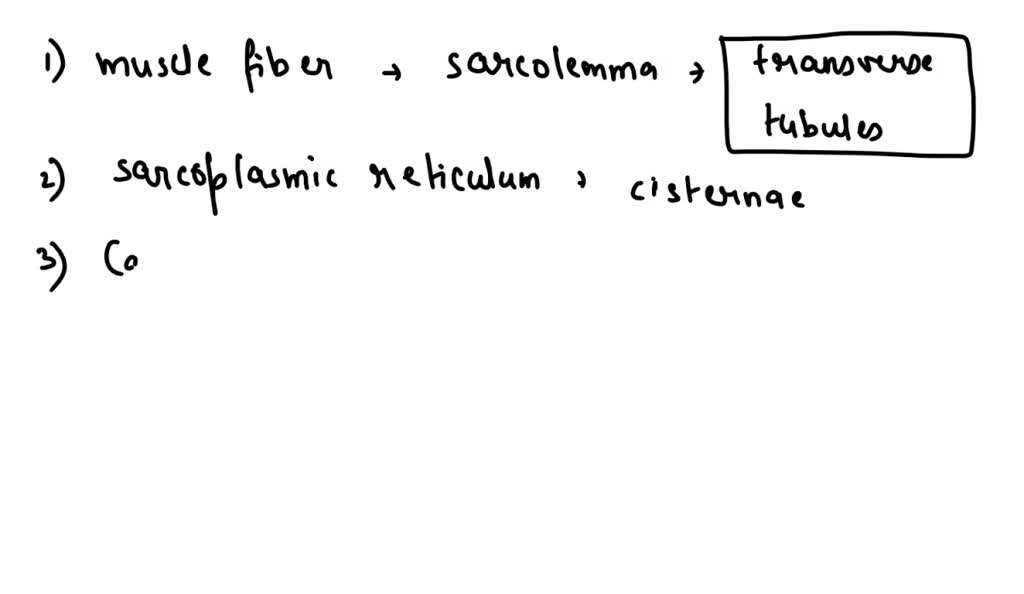 1) muscle fiber → sarcolemma → transverse
tubules
2) sarcoplasmic reticulum → cisternae
3) Ca